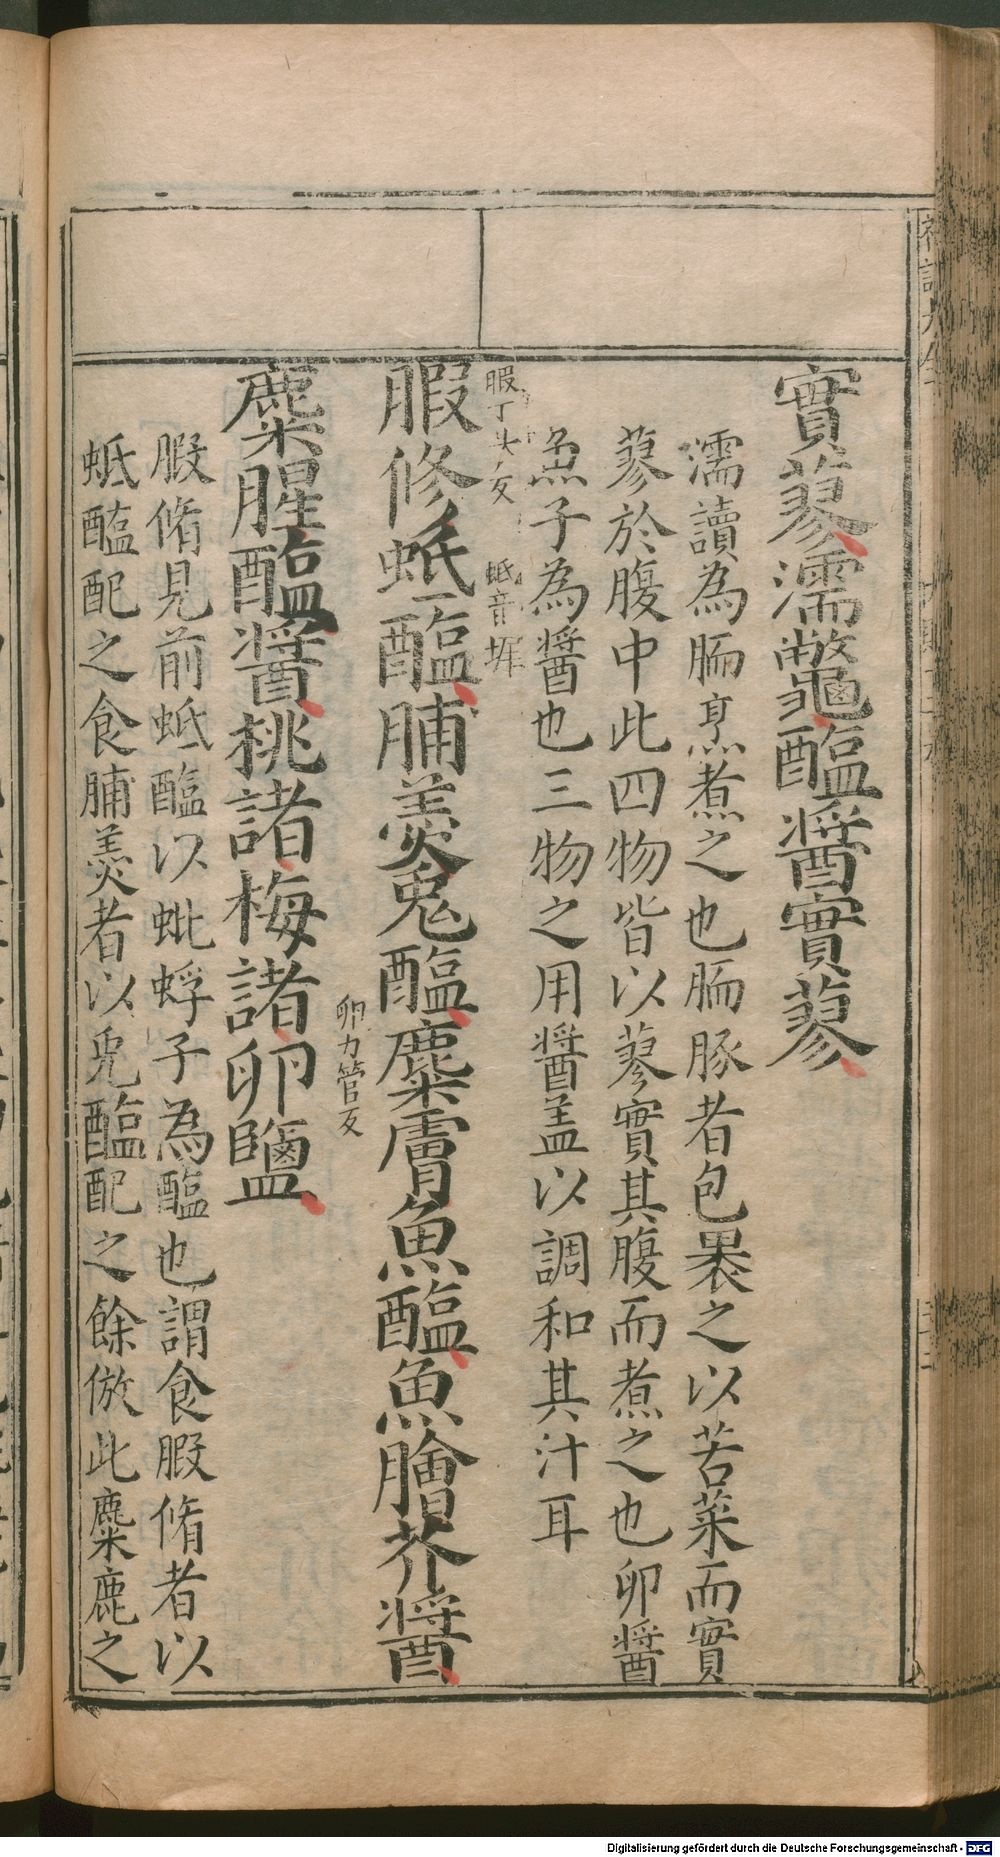 實蓼濡鼈醢醬實蓼
濡讀為胹烹煮之也胹豚者包裹之以苦菜而實
蓼於腹中此四物皆以蓼實其腹而煮之也卵醬
魚子為醬也三物之用醬蓋以調和其汁耳
腶丁夬反 蚳音墀
腶修蚳醢脯羹兔醢麋膚魚醢魚膾芥醬
卵力管反
麋腥醢醬桃諸梅諸卵鹽
腶脩見前蚳醢以蚍蜉子為醢也謂食腶脩者以
蚳醢配之食脯羹者以兎醢配之餘倣此麋鹿之
Digitalisierung gefördert durch die Deutsche Forschungsgemeinschaft - DFG